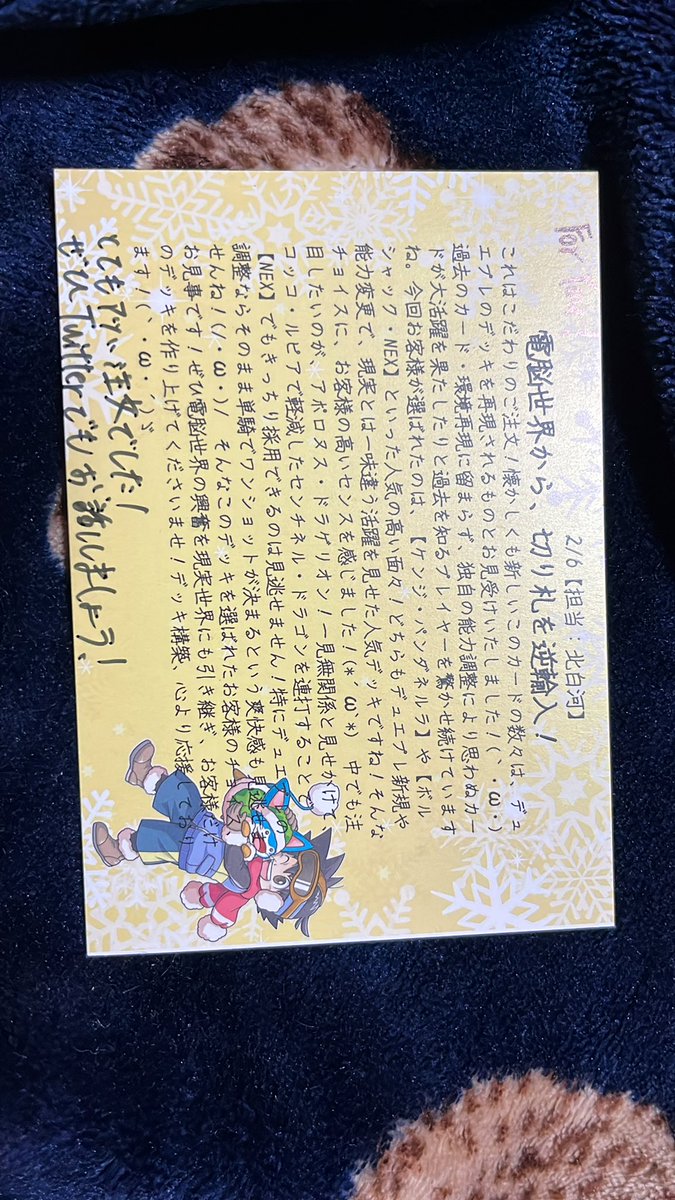 For
2/6【担当：北白河】
電脳世界から、切り札を逆輸入！
これはこだわりのご注文！懐かしくも新しいこのカードの数々は、デュ
エプレのデッキを再現されるものとお見受けいたしました！(｀・ω・)
過去のカード・環境再現に留まらず、独自の能力調整により思わぬカー
ドが大活躍を果たしたりと過去を知るプレイヤーを驚かせ続けています
ね。今回お客様が選ばれたのは、【ケンジ・パンダネルラ】や【ボル
シャック・NEX】といった人気の高い面々！どちらもデュエプレ新規や
能力変更で、現実とは一味違う活躍を見せた人気デッキですね！そんな
チョイスに、お客様の高いセンスを感じました！(*´ω`*)　中でも注
目したいのが アポロヌス・ドラゲリオン！一見無関係と見せかけて
コッコ・ルピアで軽減したセンチネル・ドラゴンを連打すること
【NEX】でもきっちり採用できるのは見逃せません！特にデュエ の
調整ならそのまま単騎でワンショットが決まるという爽快感も見
せんね！(/・ω・)/　そんなこのデッキを選ばれたお客様のチョ
お見事です！ぜひ電脳世界の興奮を現実世界にも引き継ぎ、お客様だけ
のデッキを作り上げてくださいませ！デッキ構築、心より応援しており
ます！(｀・ω・´)ゞ
とてもアツい注文でした！
ぜひTwitterでもお話しましょう！